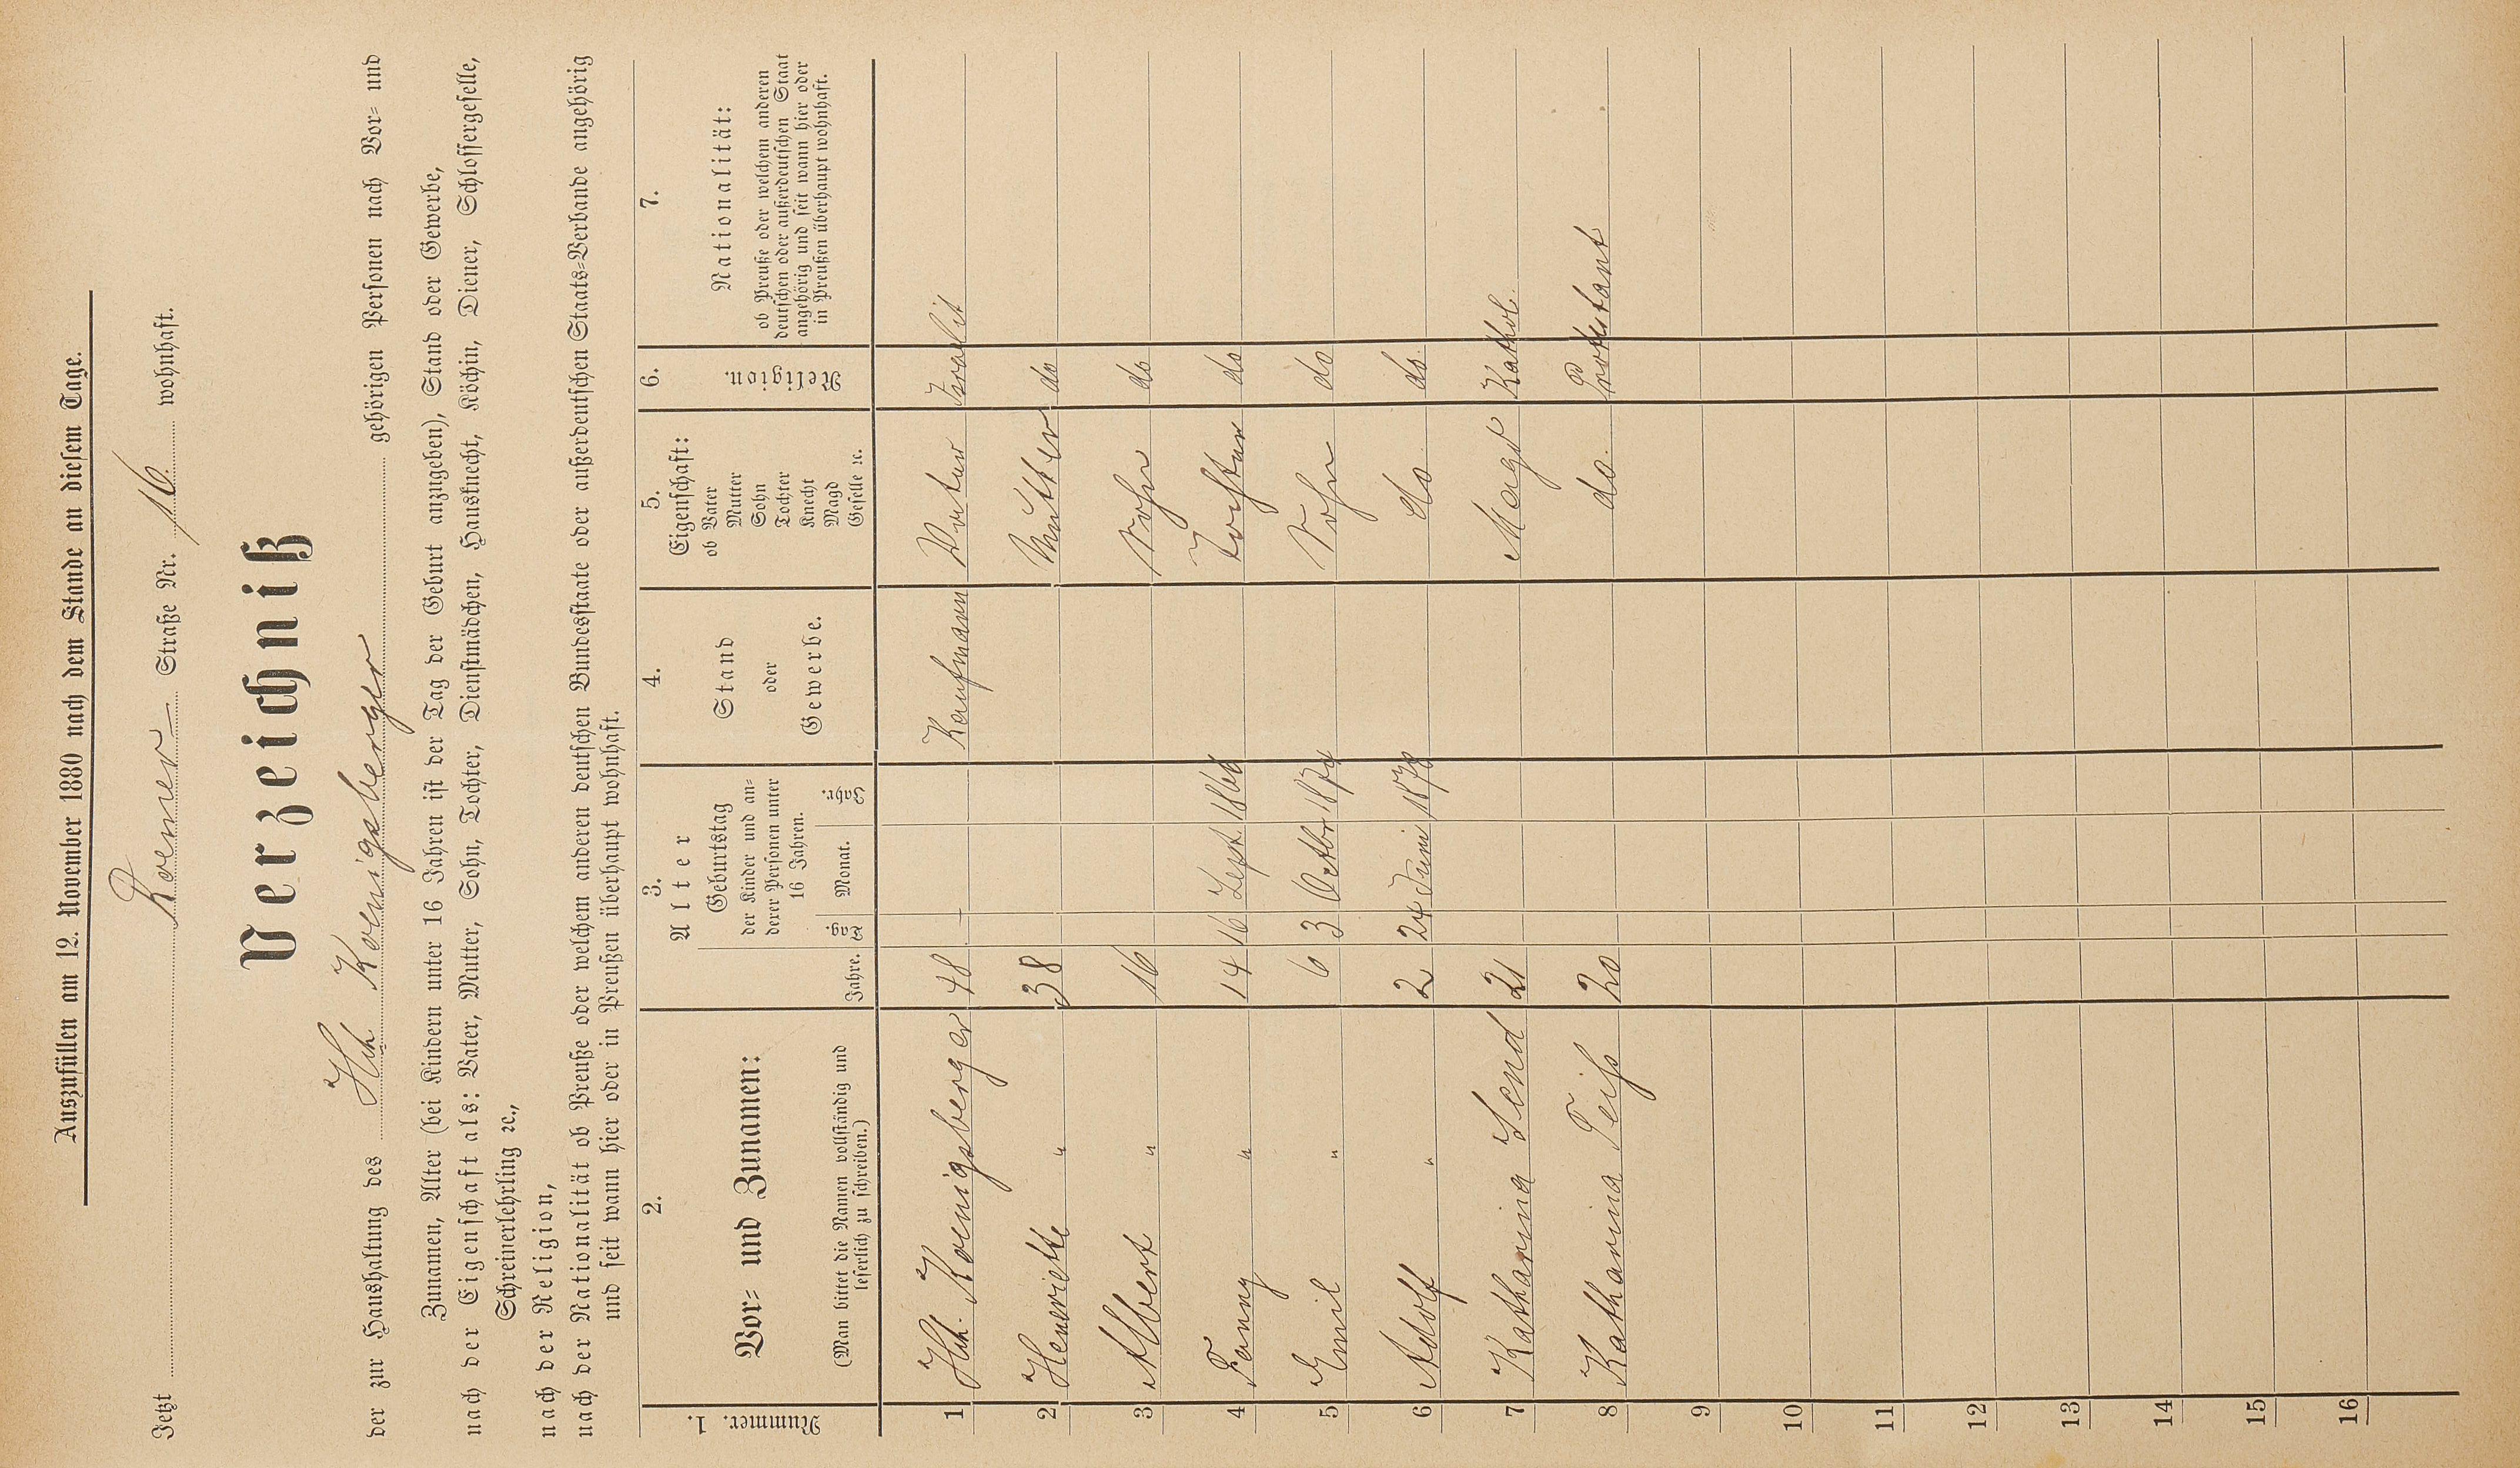 Auszufüllen am 12. November 1880 nach dem Stande an diesem Tage.
Jetzt Roemer Straße Nr. 16 wohnhaft.
Verzeichniß
der zur Haushaltung des Hch Koenigsberger gehörigen Personen nach Vor- und
Zunamen, Alter (bei Kindern unter 16 Jahren ist der Tag der Geburt anzugeben), Stand oder Gewerbe,
nach der Eigenschaft als: Vater, Mutter, Sohn, Tochter, Dienstmädchen, Hausknecht, Köchin, Diener, Schlossergeselle,
Schreinerlehrling ꝛc.,
nach der Religion,
nach der Nationalität ob Preuße oder welchem anderen deutschen Bundesstaate oder außerdeutschen Staats-Verbande angehörig
und seit wann hier oder in Preußen überhaupt wohnhaft.
1. Nummer.
2. Vor- und Zunamen:
(Man bittet die Namen vollständig und
leserlich zu schreiben.)
3. Alter
Jahre.
Geburtstag
der Kinder und an-
derer Personen unter
16 Jahren.
Tag. Monat. Jahr.
4. Stand
oder
Gewerbe.
5. Eigenschaft:
ob Vater
Mutter
Sohn
Tochter
Knecht
Magd
Geselle ꝛc.
6. Religion.
7. Nationalität:
ob Preuße oder welchem anderen
deutschen oder außerdeutschen Staat
angehörig und seit wann hier oder
in Preußen überhaupt wohnhaft.
1 Hch. Koenigsberger 48 — Kaufmann Vater Israelit
2 Henriette " 38 Mutter do
3 Albert " 16 Sohn do
4 Fanny " 14 16 Sept. 1866 Tochter do
5 Emil " 6 3 Octbr 1874 Sohn do
6 Adolf " 2 24 Juni 1878 do. do.
7 Katharina Send 21 Magd Kathol.
8 Katharina Feiß 20 do. Protestant
9
10
11
12
13
14
15
16